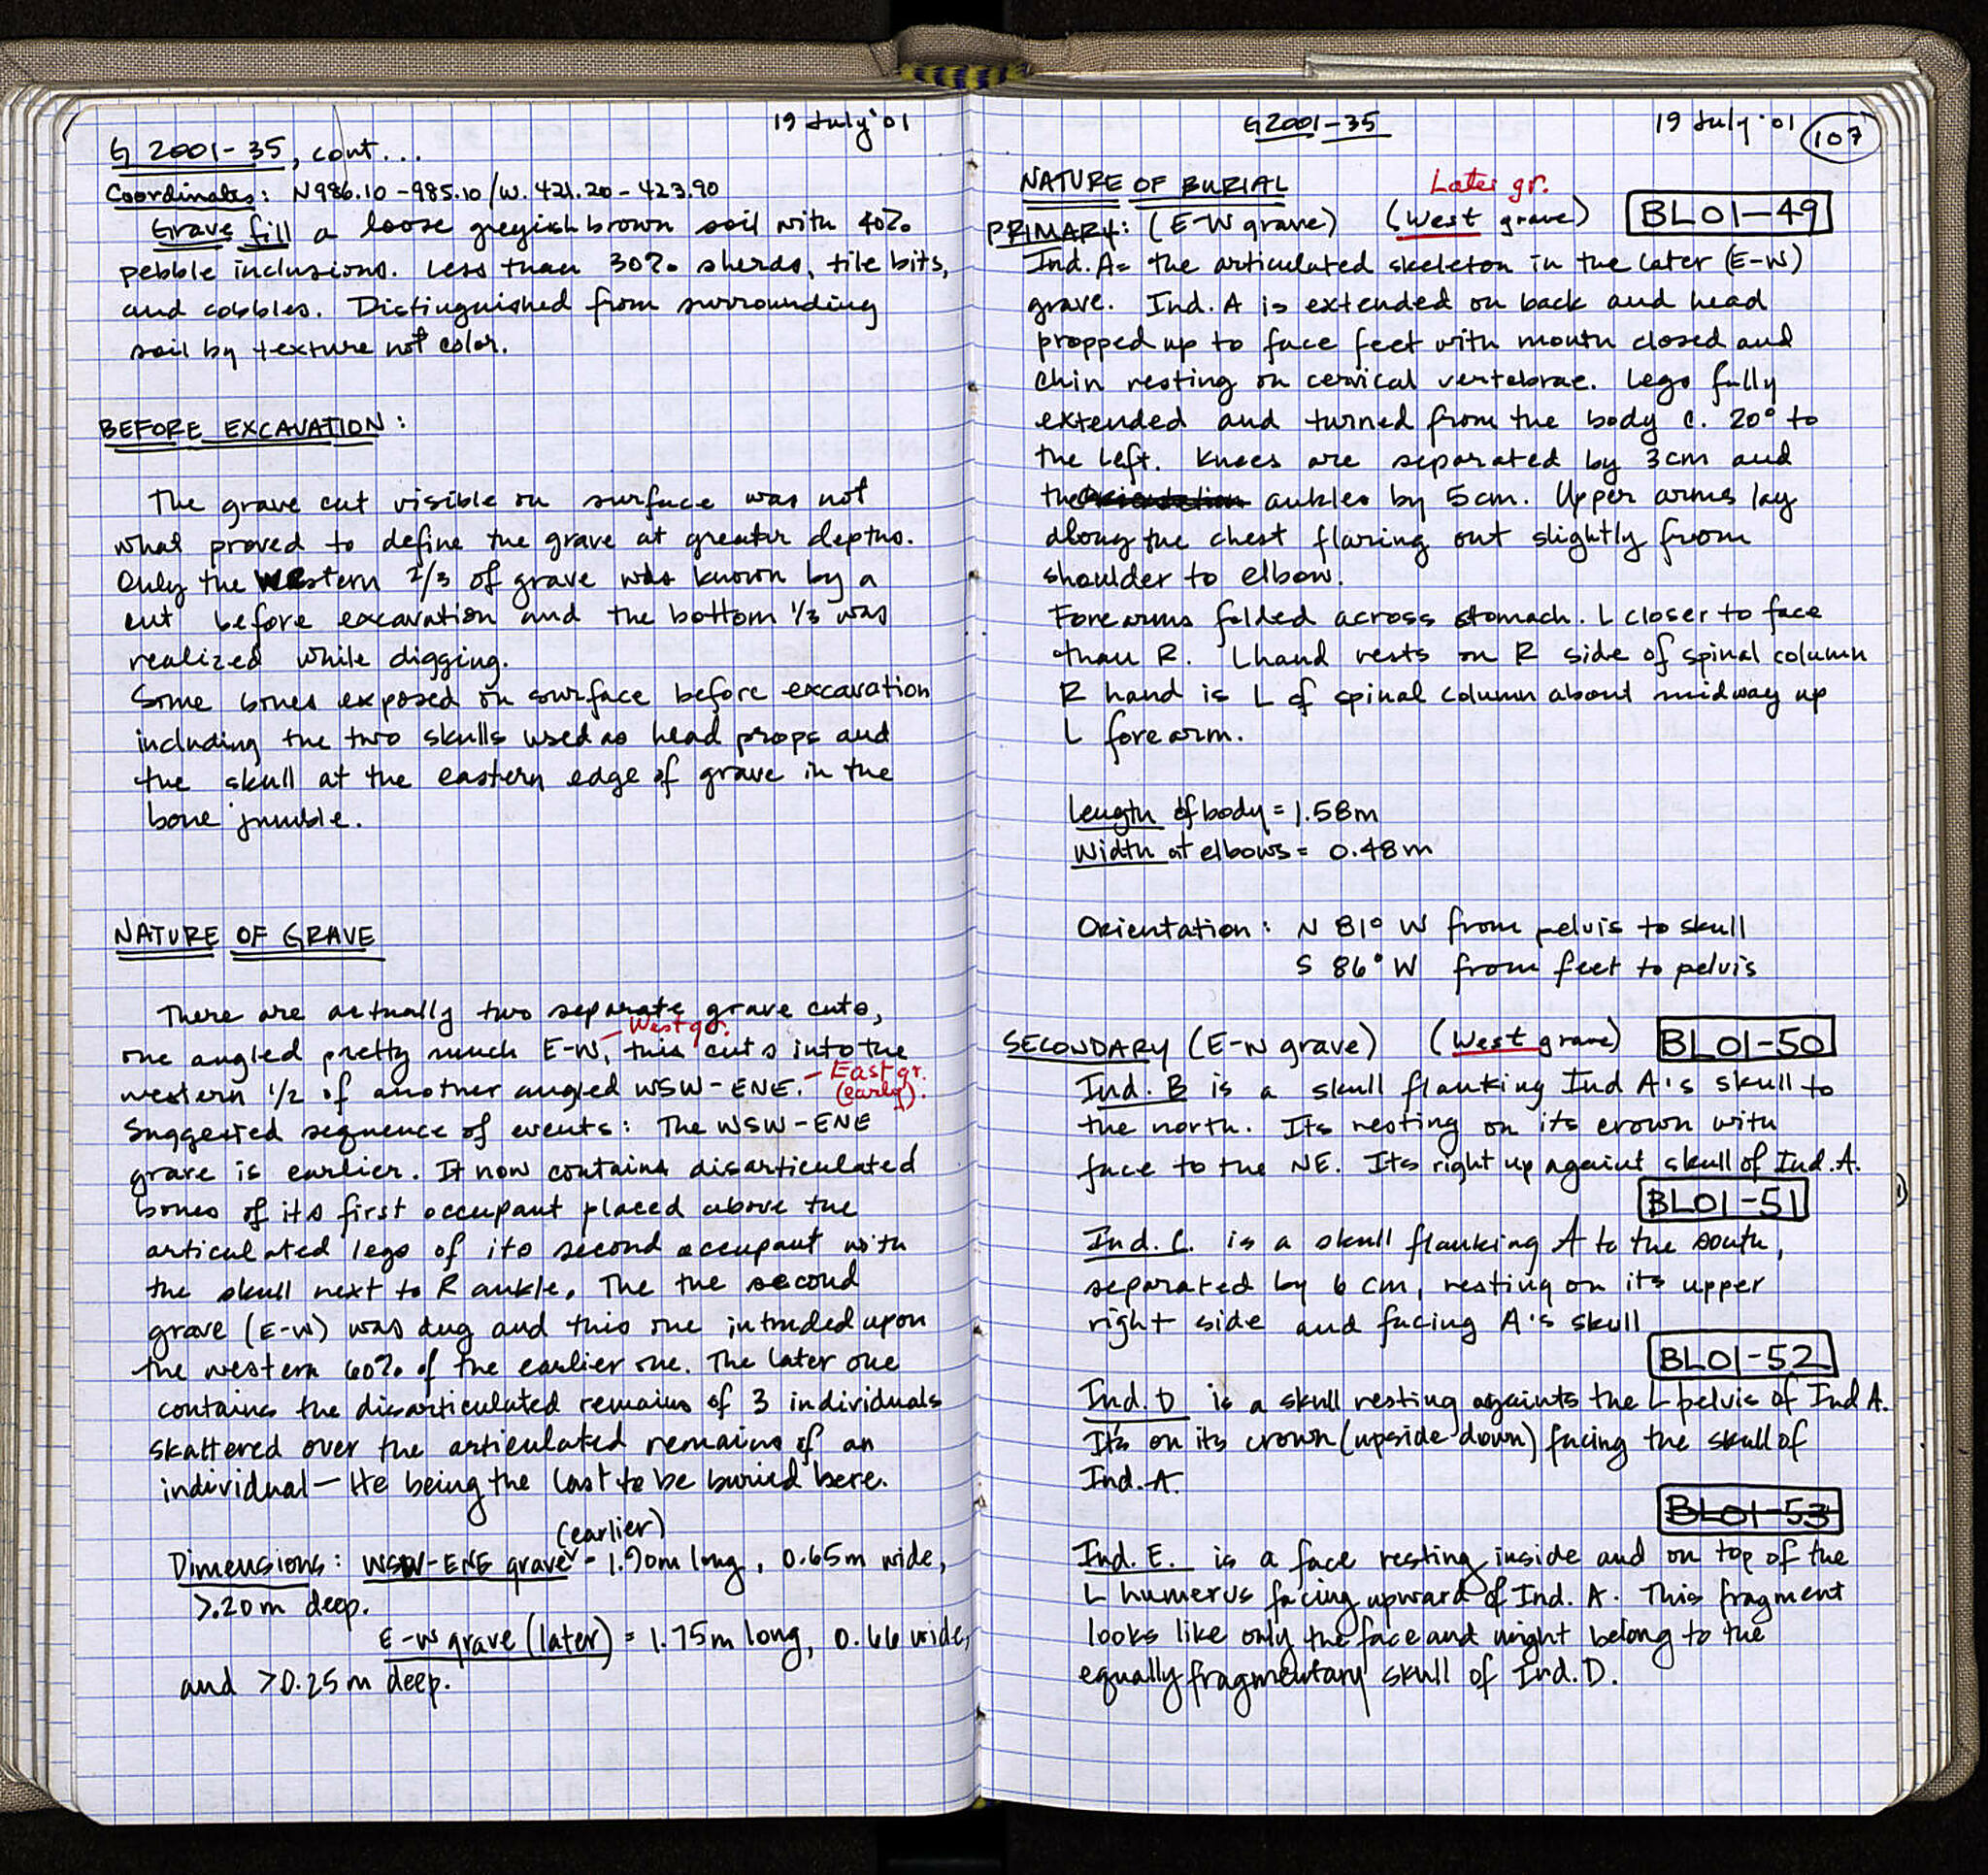 19 July '01
G 2001-35, cont...
Coordinates: N986.10-985.10/W.421.20-423.90
Grave fill a loose greyish brown soil with 40%
pebble inclusions. Less than 30% sherds, tile bits,
and cobbles. Distinguished from surrounding
soil by texture not color.
BEFORE EXCAVATION:
The grave cut visible on surface was not
what proved to define the grave at greater depths.
Only the western 2/3 of grave was known by a
cut before excavation and the bottom 1/3 was
realized while digging.
Some bones exposed on surface before excavation
including the two skulls used as head props and
the skull at the eastern edge of grave in the
bone jumble.
NATURE OF GRAVE
There are actually two separate grave cuts,
- West gr.
one angled pretty much E-W, this cuts into the
western 1/2 of another angled WSW-ENE. - East gr.
(early).
Suggested sequence of events: The WSW-ENE
grave is earlier. It now contains disarticulated
bones of its first occupant placed above the
articulated legs of its second occupant with
the skull next to R ankle. The the second
grave (E-W) was dug and this one intruded upon
the western 60% of the earlier one. The later one
contains the disarticulated remains of 3 individuals
skattered over the articulated remains of an
individual - He being the last to be buried here.
(earlier)
Dimensions: WSW-ENE grave - 1.90m long, 0.65m wide,
>.20m deep.
E-W grave (later) = 1.75m long, 0.66 wide,
and >0.25m deep.
G2001-35
19 July '01
107
NATURE OF BURIAL
Later gr.
PRIMARY: (E-W grave) (West grave) BL01-49
Ind. A = the articulated skeleton in the later (E-W)
grave. Ind. A is extended on back and head
propped up to face feet with mouth closed and
chin resting on cervical vertebrae. Legs fully
extended and turned from the body c. 20° to
the left. Knees are separated by 3cm and
the ankles by 5cm. Upper arms lay
along the chest flaring out slightly from
shoulder to elbow.
Forearms folded across stomach. L closer to face
than R. L hand rests on R side of spinal column
R hand is L of spinal column about midway up
L forearm.
Length of body = 1.58m
Width at elbows = 0.48m
Orientation: N 81° W from pelvis to skull
S 86° W from feet to pelvis
SECONDARY (E-W grave) (West grave) BL01-50
Ind. B is a skull flanking Ind A's skull to
the north. Its resting on its crown with
face to the NE. Its right up againt skull of Ind. A.
BL01-51
Ind. C. is a skull flanking A to the south,
separated by 6 cm, resting on its upper
right side and facing A's skull
BL01-52
Ind. D is a skull resting againts the L pelvis of Ind A.
It's on its crown (upside down) facing the skull of
Ind. A.
BL01-53
Ind. E. is a face resting inside and on top of the
L humerus facing upward of Ind. A. This fragment
looks like only the face and might belong to the
equally fragmentary skull of Ind. D.